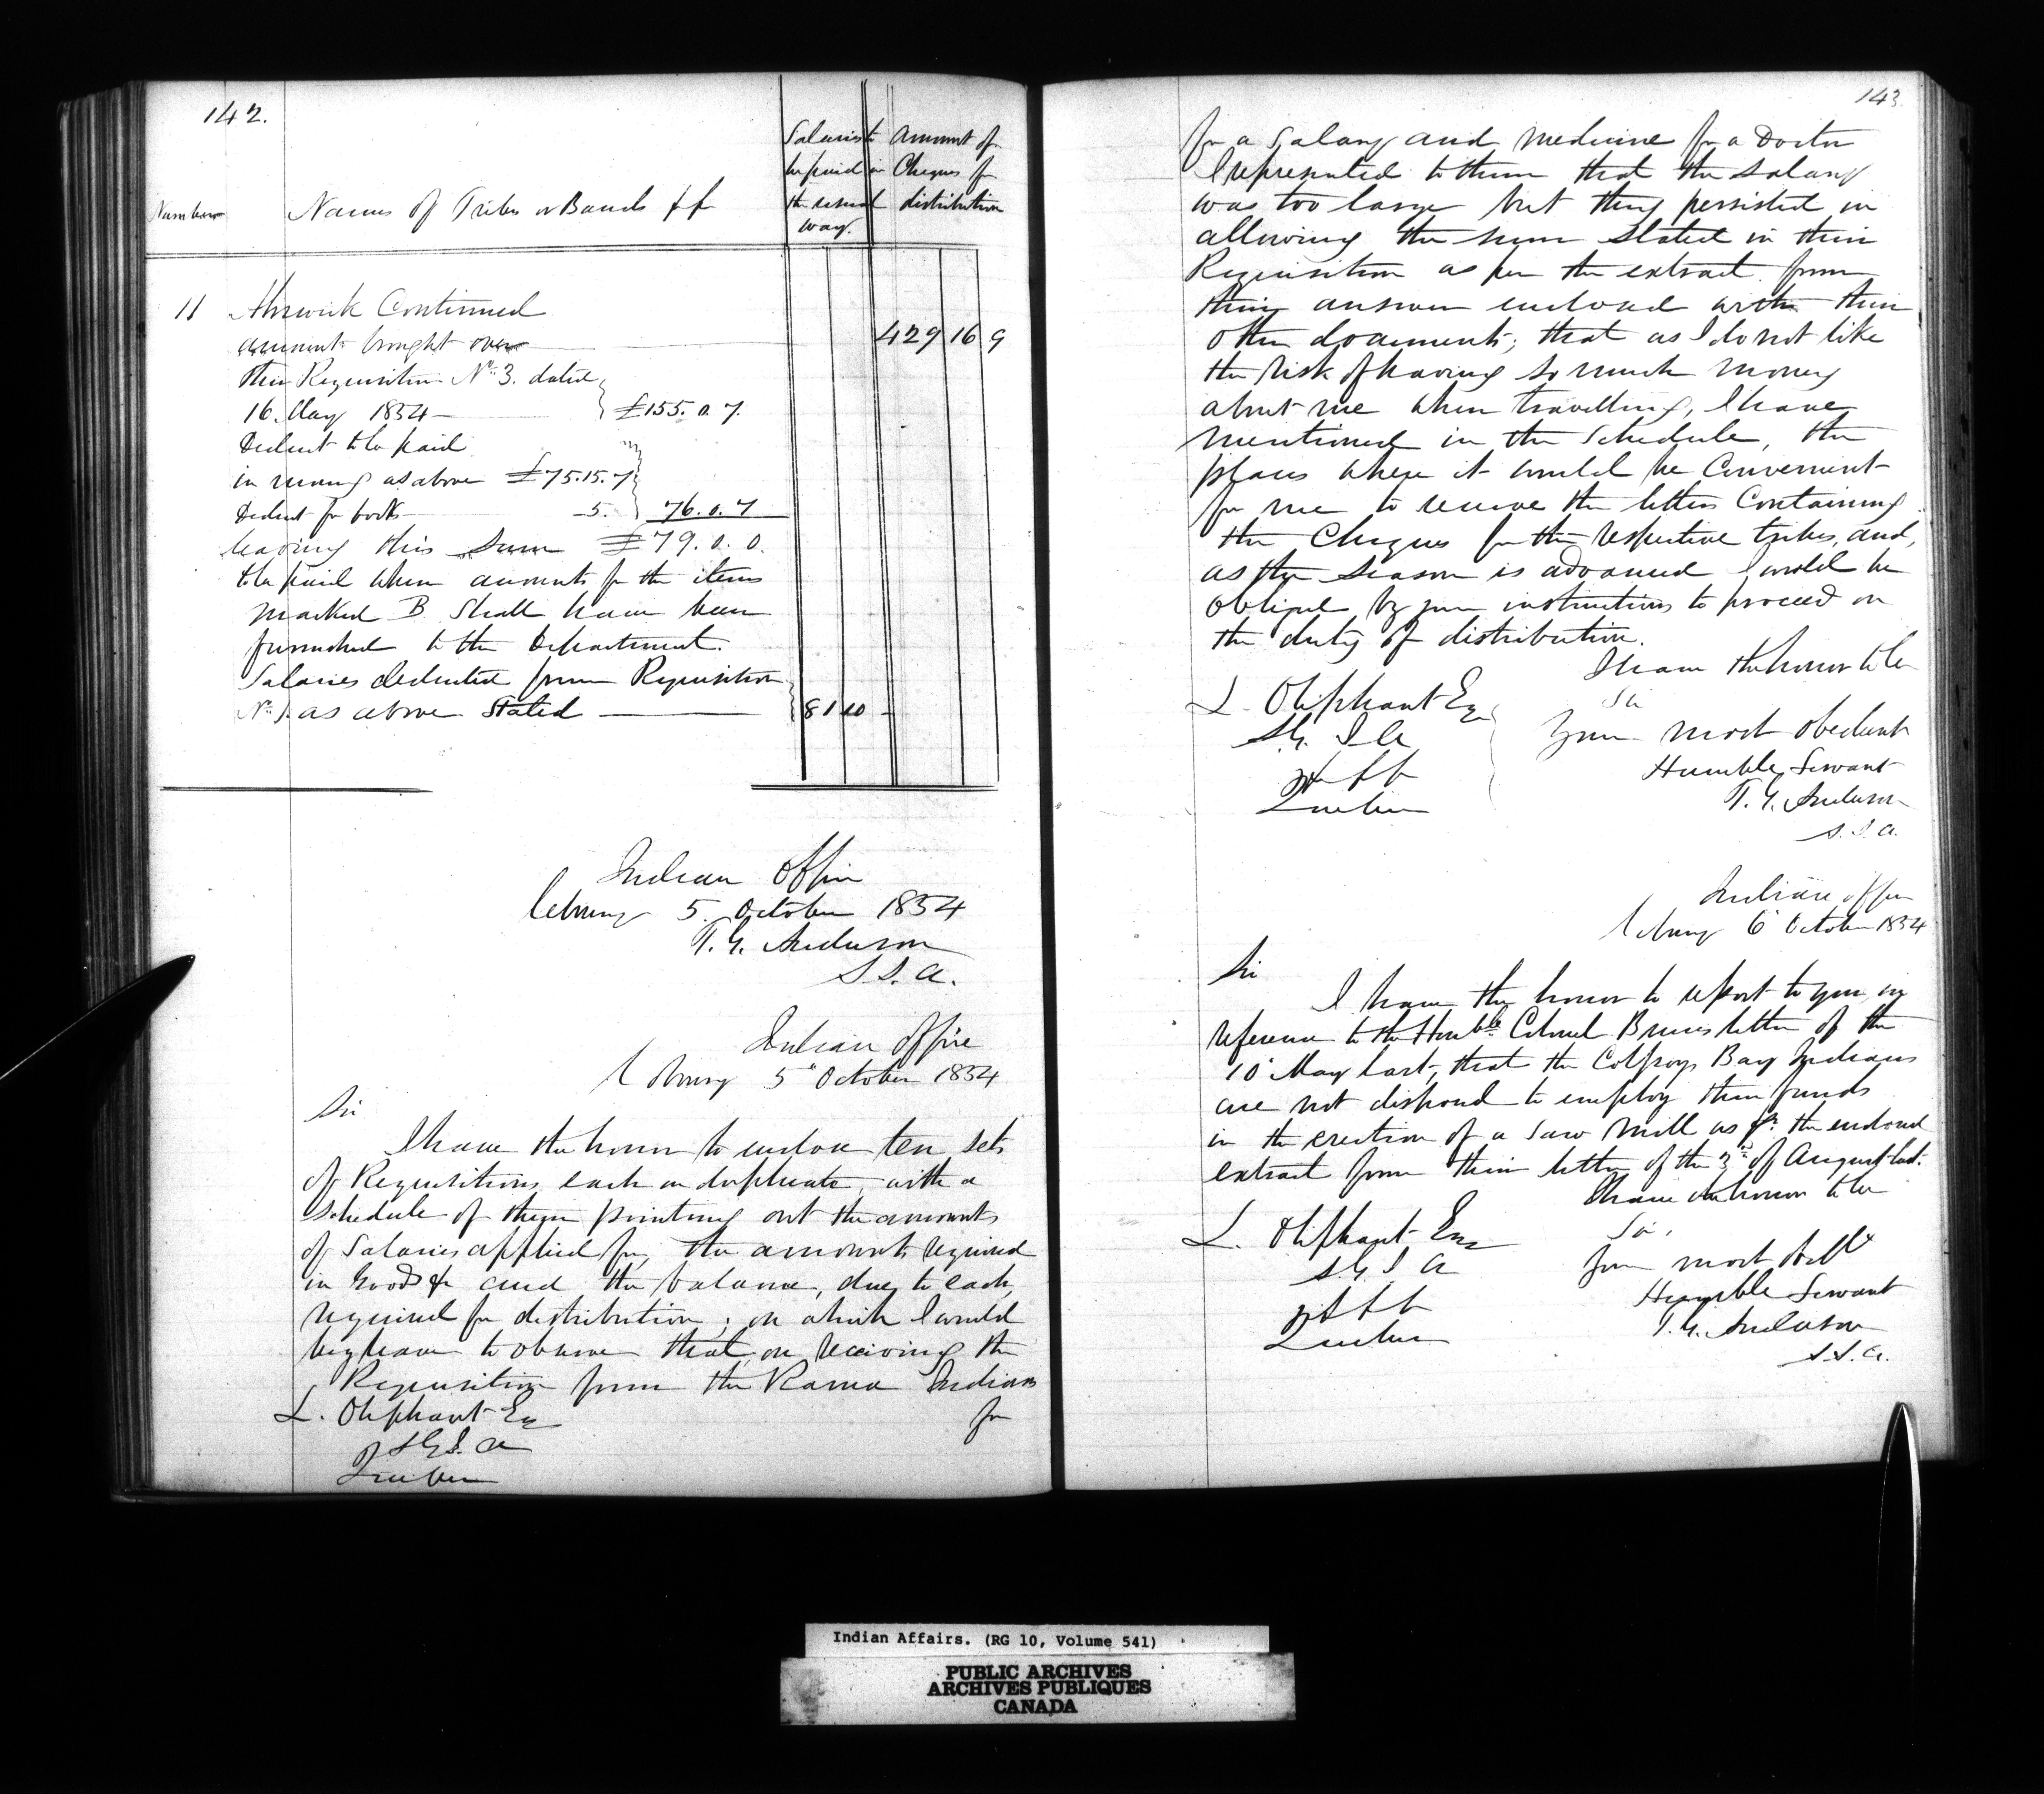 142.
Number
Names of Tribes or Bands &c
Salaries to be paid in the usual way.
Amount of Cheques for distribution
11 Alnwick Continued
amount brought over 429 16 9
Their Requisition No. 3. dated
16. May 1854 — £155. 0. 7.
Deduct to be paid
in money as above £75.15.7
Deduct for books — 5. 76. 0. 7
leaving this Sum £79. 0. 0.
to be paid when accounts for the items
marked B. Shall have been
furnished to the Department.
Salaries deducted from Requisition
No. 1. as above Stated 81 10 -
Indian Office
Cobourg 5. October 1854
T. G. Anderson
S. I. A.
Indian Office
Cobourg 5" October 1854
Sir
I have the honor to enclose ten sets
of Requisitions, each in duplicate, with a
schedule of them pointing out the amounts
of Salaries applied for, the amounts required
in Goods &c and the balance, due to each,
required for distribution; on which I would
beg leave to observe that, on receiving the
Requisition from the Rama Indians
L. Oliphant Esq
for
S G I. A
Quebec
143
for a Salary and Medicine for a Doctor
I represented to them that the salary
was too large but they persisted in
allowing the sum Stated in their
Requisition as per the extract from
their answer enclosed with their
other documents; that as I do not like
the risk of having so much money
about me when travelling, I have
mentioned in the Schedule, the
places where it would be Convenient
for me to receive the letters Containing
the Cheques for the respective tribes, and,
as the Season is advanced I would be
obliged by your instructions to proceed on
the duty of distribution.
I have the honor to be
L. Oliphant Esq
Sir
S.G. I A
Your most obedient
&c &c
Humble Servant
Quebec
T. G. Anderson
S. I. A.
Indian Office
Cobourg 6" October 1854
Sir
I have the honor to report to you, in
reference to the Honble. Colonel Bruces letter of the
10" May last, that the Colpoys Bay Indians
are not disposed to employ their funds
in the erection of a Saw Mill as pr. the enclosed
extract from their letter of the 3d of August last.
I have the honor to be
L. Oliphant Esq
Sir,
S. G. I A
Your most Obdt
&c &c
Humble Servant
Quebec
T. G. Anderson
S. I. A.
Indian Affairs. (RG 10, Volume 541)
PUBLIC ARCHIVES
ARCHIVES PUBLIQUES
CANADA